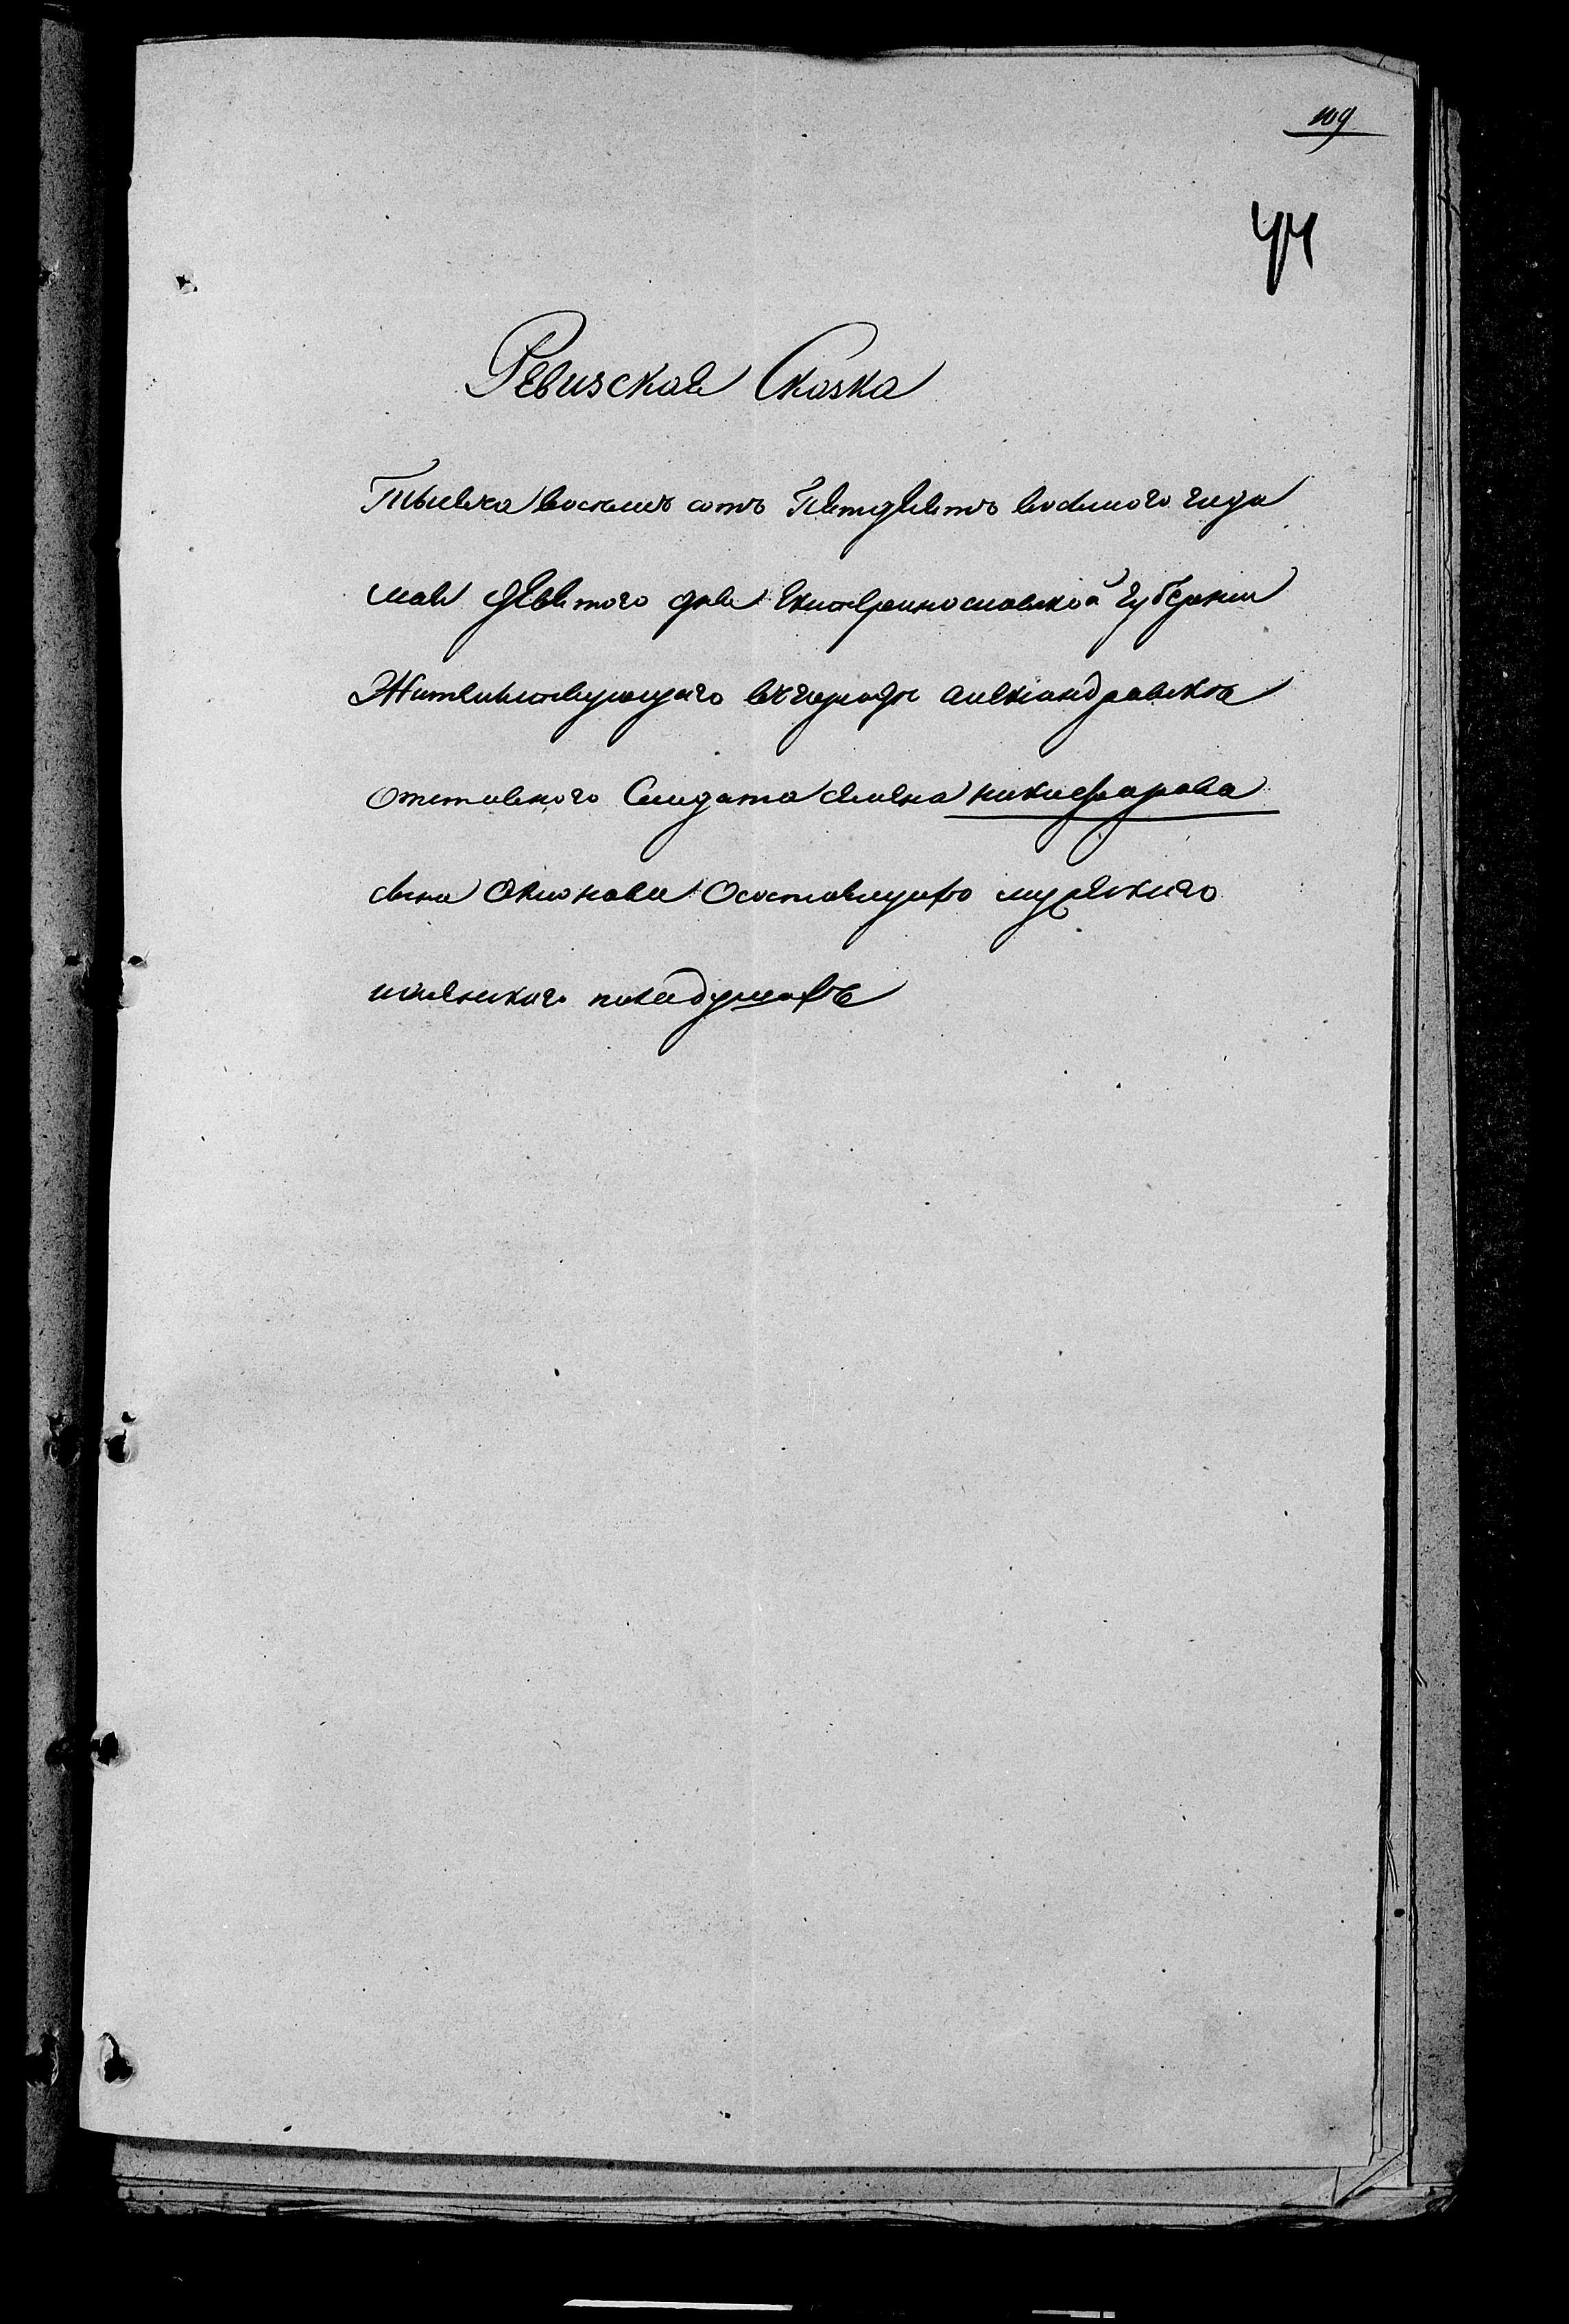 109
44
Ревизская Сказка
Тысеча восемь сотъ Петдесетъ восмого года
мая девятого дня Екатеринославской Губернии
Жителствующаго въ городе александровске
отставного Солдата семена никифарова
сына о состоящихъ мужского
иженского пола душахъ